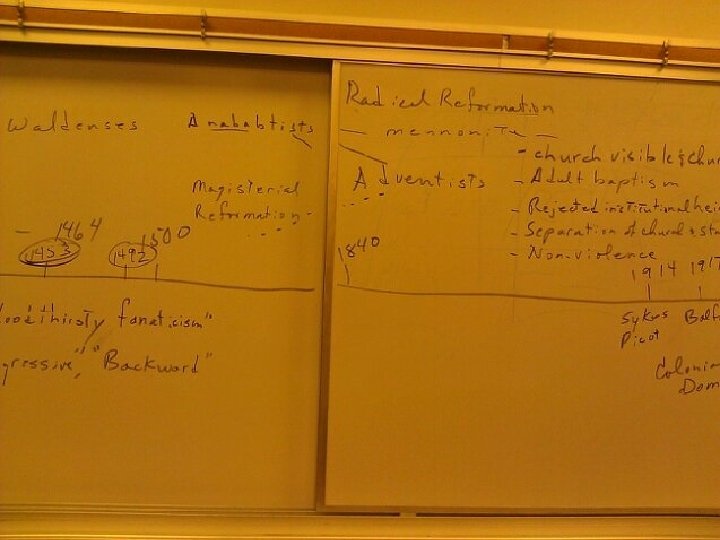 Waldenses
Anababtists
Magisterial
Reformation-
- 1464
1453
1492
1500
fanaticism"
"Backward"
Radical Reformation
- mennonite -
Adventists
- church visible &
- Adult baptism
- Rejected institutional
- Separation of church &
- Non-violence
1840
1914
Sykes
Picot